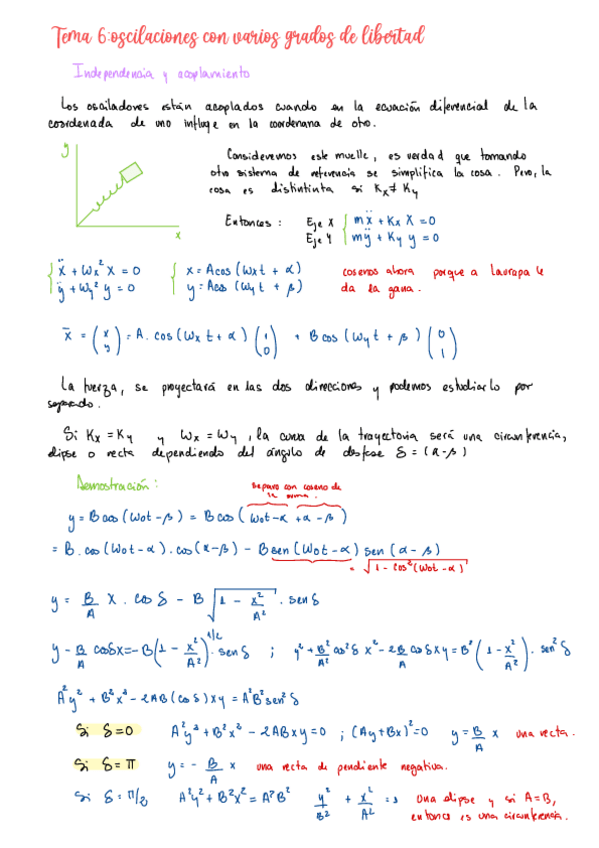 Tema 6: oscilaciones con varios grados de libertad
Independencia y acoplamiento
Los osciladores están acoplados cuando en la ecuación diferencial de la
coordenada de uno influye en la coordenana de otro.
y
x
Consideremos este muelle, es verdad que tomando
otro sistema de referencia se simplifica la cosa. Pero, la
cosa es distintinta si Kx ≠ Ky
Entonces: Eje X { mẍ + Kx X = 0
Eje Y { mÿ + Ky y = 0
{ ẍ + ωx² x = 0 { x = A cos (ωx t + α) cosenos ahora porque a
ÿ + ωy² y = 0 y = A cos (ωy t + β) da la gana.
x̄ = (x y) = A. cos (ωx t + α) (1 0) + B cos (ωy t + β) (0 1)
La fuerza, se proyectará en las dos direcciones y podemos estudiarlo por
separado.
Si Kx = Ky y ωx = ωy, la curva de la trayectoria será una circunferencia,
elipse o recta dependiendo del ángulo de desfase δ = (α - β)
Demostración:
Separo con coseno de
la suma.
y = B cos (ωot - β) = B cos (ωot - α + α - β)
= B. cos (ωot - α) . cos (α - β) - B sen (ωot - α) sen (α - β)
= √(1 - cos² (ωot - α))
y = B/A x . cos δ - B √(1 - x²/A²) . sen δ
y - B/A cos δ x = - B (1 - x²/A²)^1/2 . sen δ ; y² + B²/A² cos² δ x² - 2 B/A cos δ x y = B² (1 - x²/A²) . sen² δ
A²y² + B²x² - 2AB (cos δ) xy = A²B² sen² δ
Si δ = 0 A²y² + B²x² - 2ABxy = 0 ; (Ay + Bx)² = 0 y = B/A x una recta.
Si δ = π y = - B/A x una recta de pendiente negativa.
Si δ = π/2 A²y² + B²x² = A²B² y²/B² + x²/A² = 1 Una elipse y si A = B,
entonces es una circunferencia.